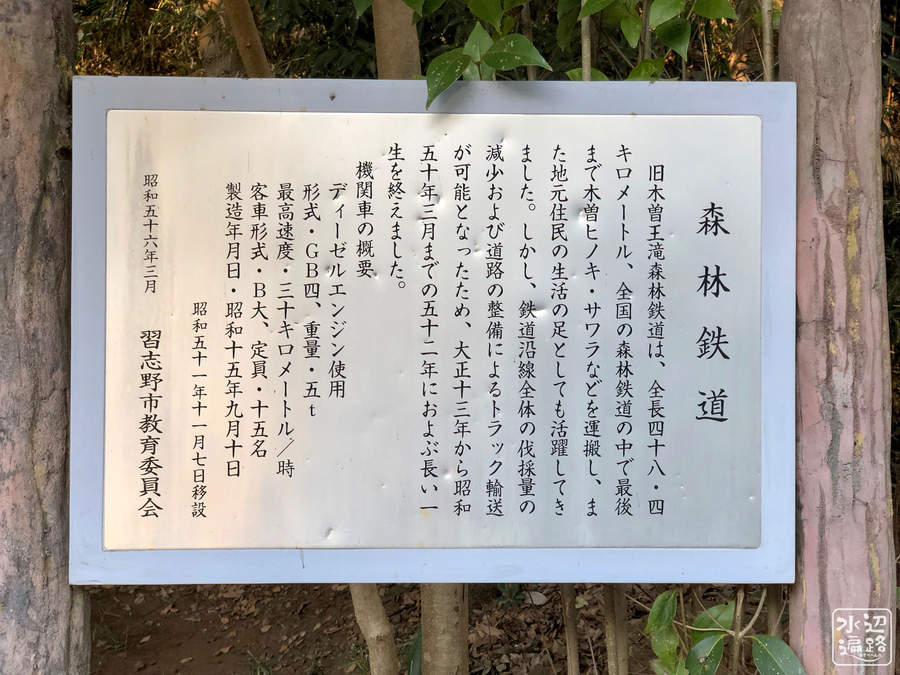 森林鉄道
旧木曽王滝森林鉄道は、全長四十八・四
キロメートル、全国の森林鉄道の中で最後
まで木曽ヒノキ・サワラなどを運搬し、ま
た地元住民の生活の足としても活躍してき
ました。しかし、鉄道沿線全体の伐採量の
減少および道路の整備によるトラック輸送
が可能となったため、大正十三年から昭和
五十年三月までの五十二年におよぶ長い一
生を終えました。
機関車の概要
ディーゼルエンジン使用
形式・GB四、重量・五t
最高速度・三十キロメートル/時
客車形式・B大、定員・十五名
製造年月日・昭和十五年九月十日
昭和五十一年十一月七日移設
昭和五十六年三月
習志野市教育委員会
水辺
遍路